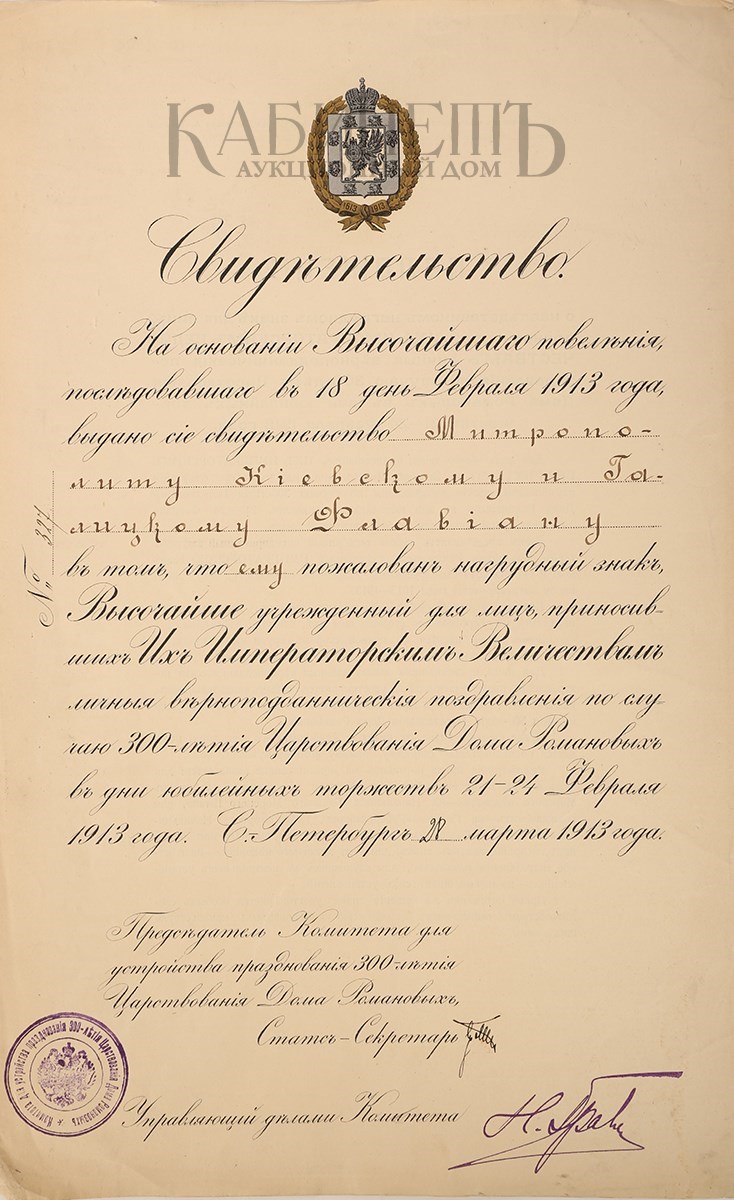 КАБИНЕТЪ
АУКЦИОННЫЙ ДОМ
1613 1913
Свидѣтельство.
На основаніи Высочайшаго повелѣнія,
послѣдовавшаго въ 18 день Февраля 1913 года,
выдано сіе свидѣтельство Митропо-
литу Кіевскому и Га-
лицкому Флавіану
№ 327
въ томъ, что ему пожалованъ нагрудный знакъ,
Высочайше учрежденный для лицъ, приносив-
шихъ Ихъ Императорскимъ Величествамъ
личныя вѣрноподданническія поздравленія по слу-
чаю 300-лѣтія Царствованія Дома Романовыхъ
въ дни юбилейныхъ торжествъ 21-24 Февраля
1913 года. С.-Петербургъ 28 марта 1913 года.
Предсѣдатель Комитета для
устройства празднованія 300-лѣтія
Царствованія Дома Романовыхъ,
Статсъ-Секретарь
Управляющій дѣлами Комитета
Комитетъ для устройства празднованія 300-лѣтія Царствованія Дома Романовыхъ